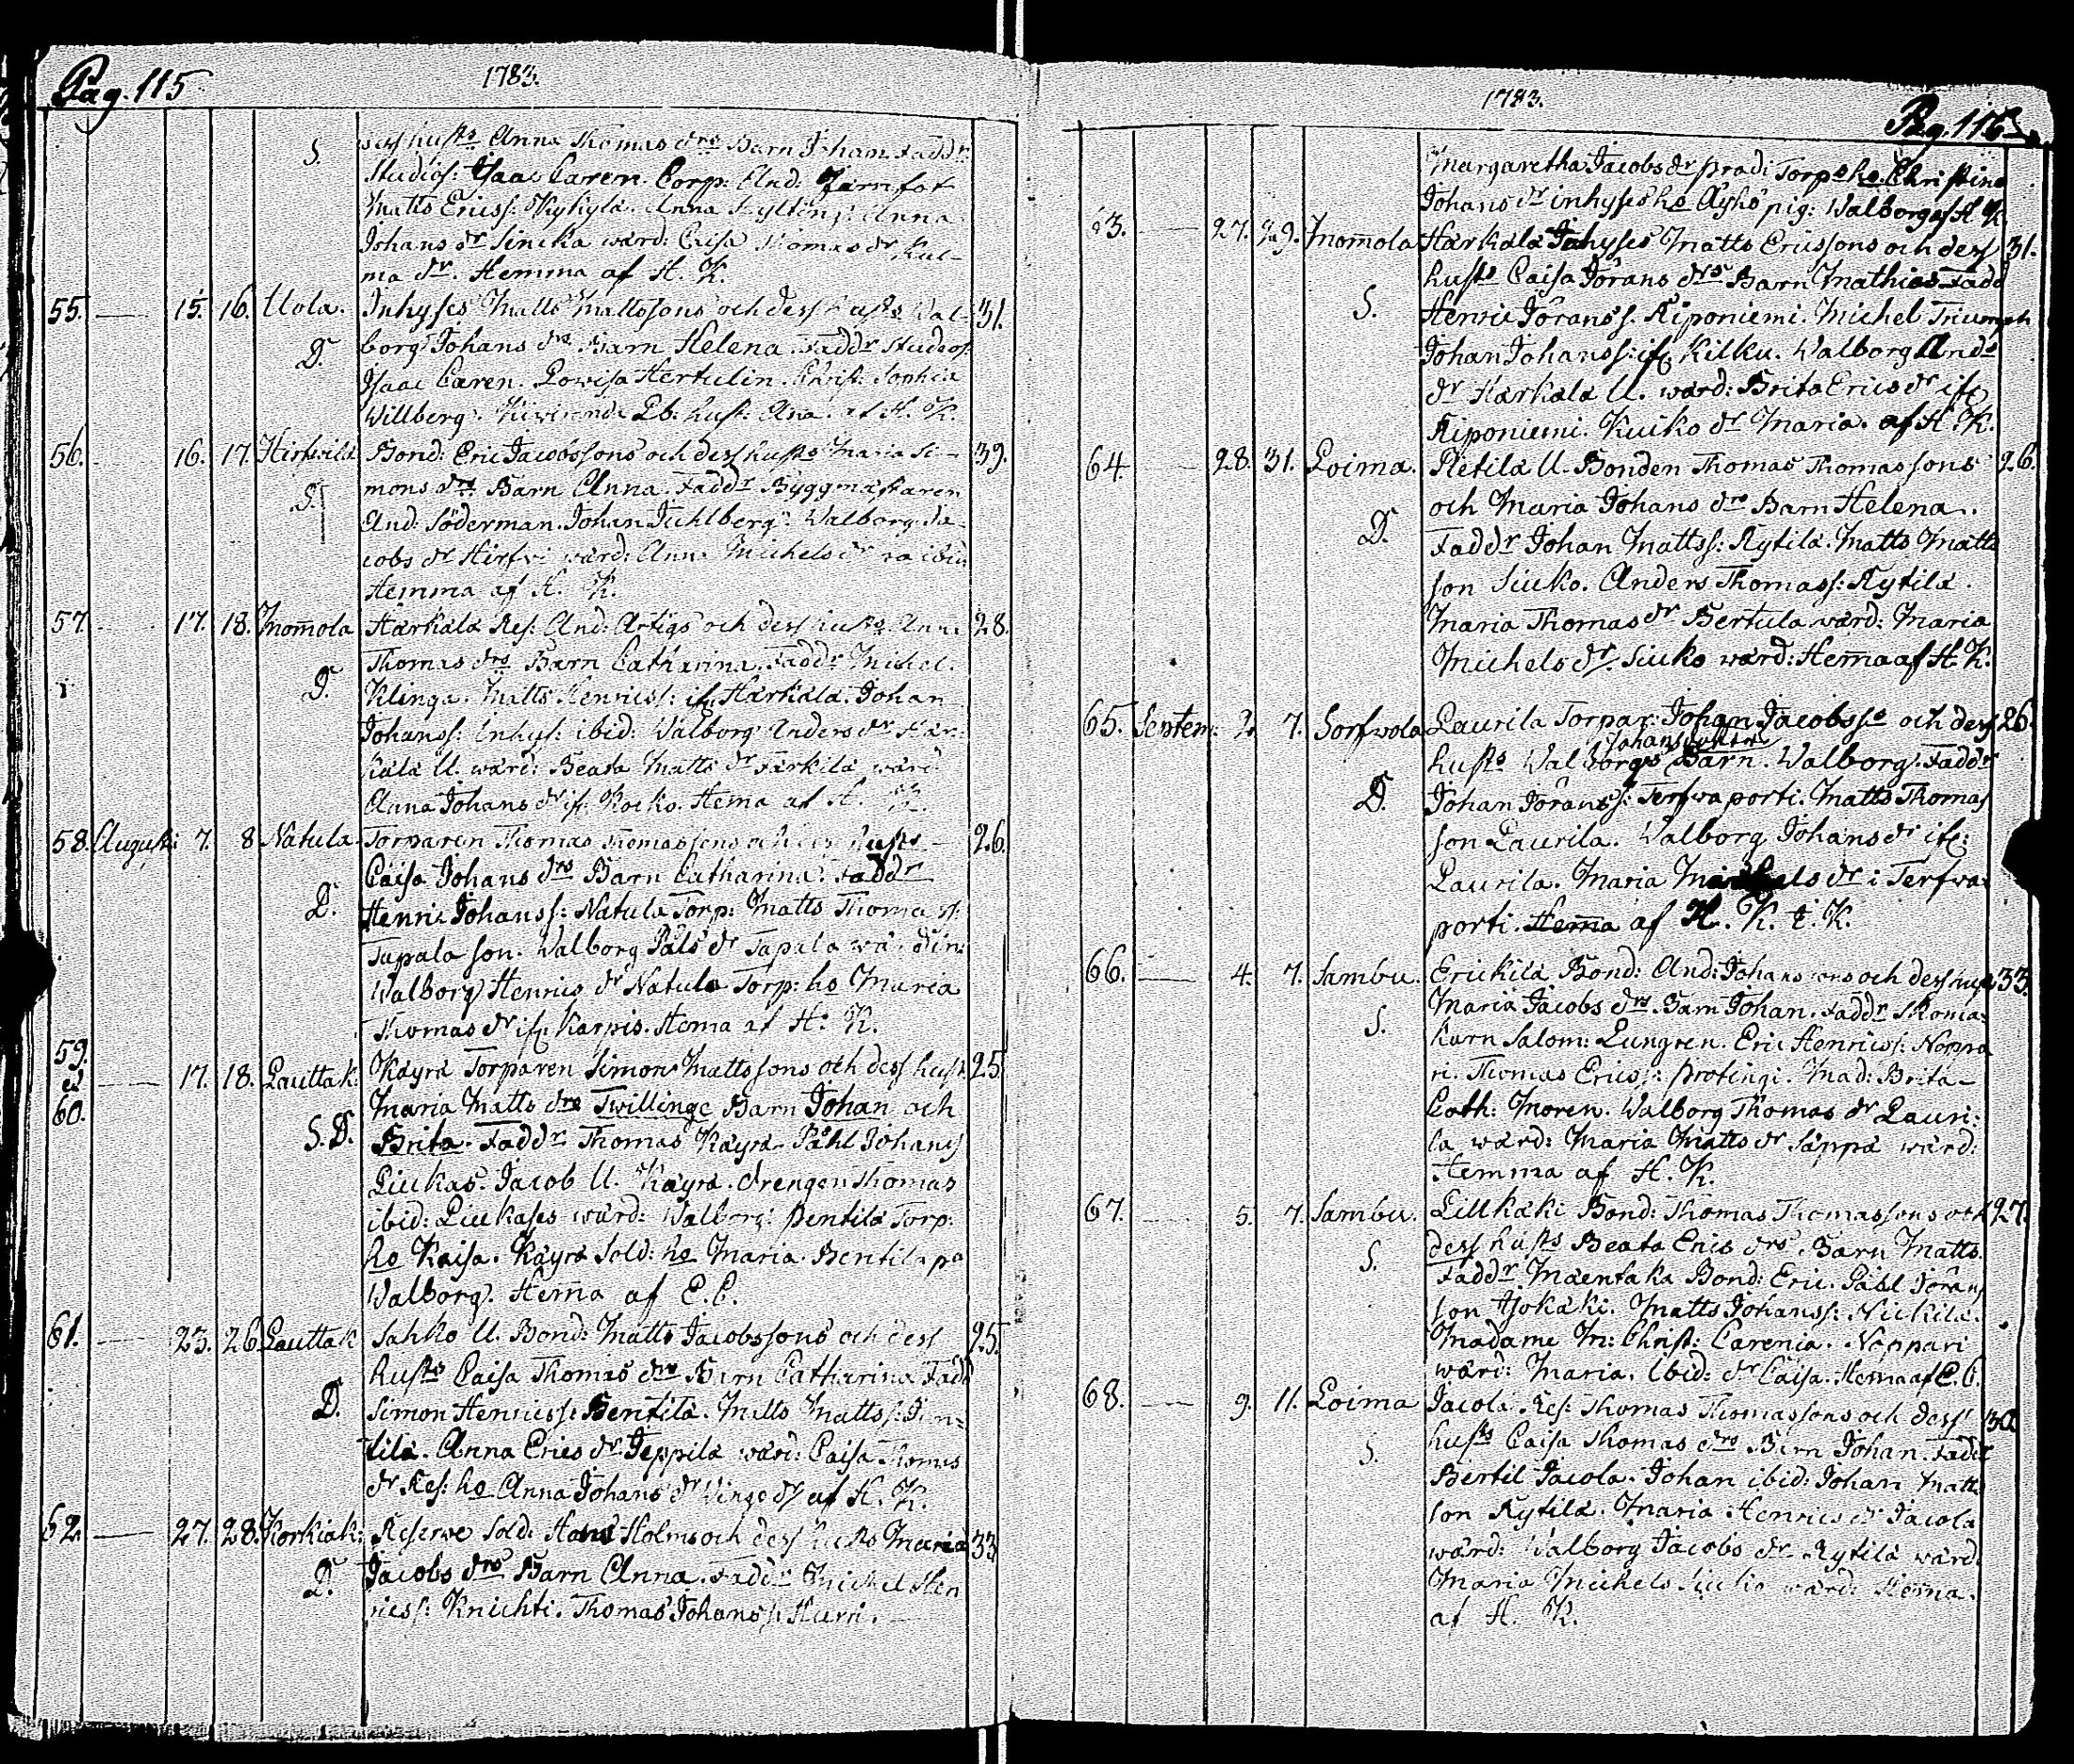 Pag. 115
1783.
dess hustrs Anna Thomas drs Barn Johan. Faddr.
S.
Studios: Isaac Caren. Corp: And:
Matts Ericss: Kykylä. Anna Anna
Johans dr Sincka wärd: Caisa Thomas dr Kul-
ma dr. Hemma af H. K.
55. — 15. 16. Uola. Inhyses Matts Mattssons och dess hustrs Wal- 31.
D. borg Johans drs. Barn Helena. Faddr Studios:
Isaac Caren. Lowisa Hertulin. Christ: Sophia
Willberg. Lb: hust: Ana. af H. K.
56. — 16. 17. Hirfwilä Bond: Eric Jacobssons och dess hustrs Maria Si- 39.
mons drs. Barn Anna. Faddr Byggmästaren
S.
And: Söderman. Johan Walborg Ja-
cobs dr Hirfwi wärd: Anna Michels dr ibid:
Hemma af H. K.
57. — 17. 18. Inomola Härkälä Res: And: Artigs och dess hustrs Anna 28.
Thomas drs Barn Catharina. Faddr Michel
D. Klinga. Matts Henricss: if: Härkälä. Johan
Johanss: Inhys: ibid: Walborg Anders dr Här-
kälä U. wärd: Beata Matts dr Färkilä wärd
Anna Johans dr if: Kocko. Hema af H. K.
58. August: 7. 8 Natula Torparen Thomas Thomassons och dess hustrs — 26.
Caisa Johans drs Barn Catharina. Faddr
D. Henric Johanss: Natula Torp: Matts Thomas
Tapala son. Walborg Påls dr Tapala
Walborg Henrics dr Natula Torp: ho Maria
Thomas dr if: Karpis. Hema af H. K.
59.
et — 17. 18. Lauttak: Käyrä Torparen Simon Mattssons och dess hust 25
60. Maria Matts drs Twillinge Barn Johan och
S. D. Brita. Faddr Thomas Käyrä. Påhl Johanss
Liukas. Jacob U. Käyrä. drengen Thomas
ibid: Liukases wärd: Walborg: Pentilä Torp:
ho Kaisa. Käyrä Sold: ho Maria. Bentilä pa
Walborg. Hema af E. C.
61. — 23. 26 Lauttak Sahko U. Bond: Matts Jacobssons och dess 25.
hustrs Caisa Thomas drs Barn Catharina Fadd
D. Simon Henricss: Bentilä. Matts Mattss:
tilä. Anna Erics dr Jeppilä wärd: Caisa Thomas
dr Res: ho Anna Johans dr af H. K.
62. — 27. 28. Korkiak: Reserwe Sold: Hans Holms och dess hustrs Maria 33
D. Jacobs drs Barn Anna. Faddr Michel Hen
ricss: Knichti. Thomas Johanss: Hurri. —
1783.
Pag. 116
Margaretha Jacobs dr Torps ho. Christina
Johans dr inhyses ho Äyhö pig: Walborg af H K
63. — 27. 29. Inomola Härkälä Inhyses Matts Ericssons och dess 31.
hustrs Caisa Jörans drs Barn Mathias Fadd
S. Henric Jöranss. Riponiemi. Michel Triumph
Johan Johanss: if: Kilku. Walborg Ands
dr Härkälä U. wärd: Brita Erics dr if:
Riponiemi. Kuiko dr Maria. af H. K.
64. — 28. 31. Loima. Retilä U. Bonden Thomas Thomassons 26.
och Maria Johans drs Barn Helena.
D. Faddr Johan Mattss: Rytilä. Matts Matts
son Siuko. Anders Thomass: Rytilä.
Maria Thomas dr Bertula wärd: Maria
Michels dr. Siuko wärd: Hema af H. K.
65. Septem: 2. 7. Sorfwola Laurila Torpar: Johan Jacobss och dess 26.
Johans dotters
hustrs Walborgs Barn. Walborg. Faddr
D. Johan Jöranss: Terfwaporti. Matts Thomas
son Laurila. Walborg Johans dr if:
Laurila. Maria Michels dr i Terfwa-
porti. Hema af H. K. i. K.
66. — 4. 7. Sambu. Erickilä Bond: And: Johanssons och dess hust 33.
Maria Jacobs drs Barn Johan. Faddr Skoma-
S. karn Salom: Lungren. Eric Henricss: Noppa
ri. Thomas Ericss: Protingi. Mad: Brita
Cath: Moren. Walborg Thomas dr Lauri:
la wärd: Maria Matts dr Säppä wärd:
Hemma af H. K.
67. — 5. 7. Sambu. Lillkäki Bond: Thomas Thomassons och 27.
S. dess hustrs Beata Erics drs. Barn Matts.
Faddr. Mäentaka Bond: Eric. Påhl Jörans
son Isokäki. Matts Johanss: Nickilä.
Madame M: Christ: Carenia. Noppari
wärd: Maria. Ibid: dr Caisa. Hema af E. C.
68. — 9. 11. Loima Jacola Res: Thomas Thomassons och dess 30
S. hustrs Caisa Thomas drs Barn Johan. Faddr
Bertil Jacola. Johan ibid: Johan Matts
son Rytilä. Maria Henrics dr Jacola
wärd: Walborg Jacobs dr Rytilä wärd.
Maria Michels Siuko wärd: Hema.
af H. K.